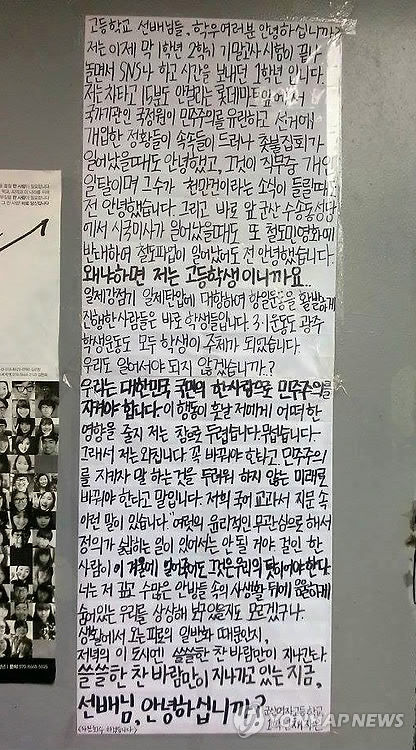 고등학교 선배님들, 학우여러분 안녕하십니까?
저는 이제 막 1학년 2학기 기말고사 시험이 끝나
놀면서 SNS나 하고 시간을 보내던 1학년 입니다.
저는 차타고 15분도 안걸리는 롯데마트 앞에서
국가기관인 국정원이 민주주의를 유린하고 선거에
개입한 정황들이 속속들이 드러나 촛불집회가
일어났을때도 안녕했고, 그것이 직무중 개인
일탈이며 그 수가 천만건이라는 소식이 들릴때도
전 안녕했습니다. 그리고 바로 앞 군산 수송동성당
에서 시국미사가 일어났을때도 또 철도민영화에
반대하여 철도파업이 일어났어도 전 안녕했습니다.
왜냐하면 저는 고등학생이니까요..
일제강점기 일제탄압에 대항하여 항일운동을 활발하게
진행한 사람들은 바로 학생들입니다. 3·1운동도 광주
학생운동도 모두 학생이 주체가 되었습니다.
우리도 일어서야 되지 않겠습니까?
우리는 대한민국 국민의 한사람으로 민주주의를
지켜야 합니다. 이 행동이 훗날 저에게 어떠한
영향을 줄지 저는 참으로 두렵습니다. 무섭습니다.
그래서 저는 외칩니다. 꼭 바꿔야 한다고. 민주주의
를 지키자 말 하는 것을 두려워 하지 않는 미래로
바꿔야 한다고 말입니다. 저희 국어 교과서 지문 속
이런 말이 있습니다. "여럿의 윤리적인 무관심으로 해서
정의가 짓밟히는 일이 있어서는 안 될 거야. 걸인 한
사람이 이 겨울에 얼어죽어도 그것은 우리의 탓이어야 한다.
너는 저 깊고 수많은 안방들 속의 사생활 뒤에 음울하게
숨어있는 우리를 상상해 보고 있을지도 모르겠구나.
생활에서 오는 피로의 일반화 때문인지,
저녁의 이 도시엔 쓸쓸한 찬 바람만이 지나간다."
쓸쓸한 찬 바람만이 지나가고 있는 지금,
선배님, 안녕하십니까?
군산여자고등학교
YONHAP NEWS